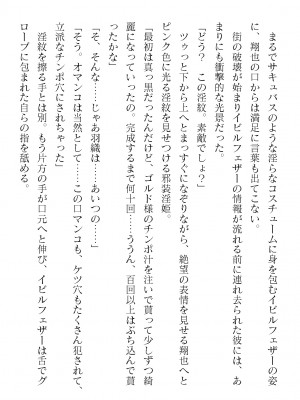 まるでサキュバスのような淫らなコスチュームに身を包むイビルフェザーの姿
に、翔也の口からは満足に言葉も出てこない。
街の破壊が始まりイビルフェザーの情報が流れる前に連れ去られた彼には、あ
まりにも衝撃的な光景だった。
「どう？　この淫紋。素敵でしょ？」
ツゥっと下から上へとまっすぐになぞりながら、絶望の表情を見せる翔也へと
ピンク色に光る淫紋を見せつける邪装淫姫。
「最初は真っ黒だったんだけど、ゴルド様のチンポ汁を注いで貰って少しずつ綺
麗になっていったの。完成するまで何十回……ううん、百回以上はぶち込んで貰
ったかな」
「そ、そんな……じゃあ羽織は……あいつの……」
「そう。オマンコは当然として……この口マンコも、ケツ穴もたくさん犯されて、
立派なチンポ穴にされちゃった」
淫紋を擦る手とは別に、もう片方の手が口元へと伸び、イビルフェザーは舌でグ
ローブに包まれた自らの指を舐める。